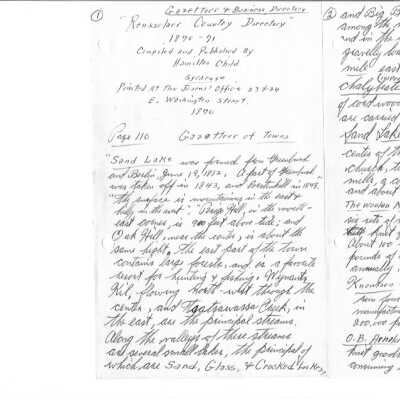 ①
Gazetteer & Business Directory
"Rensselaer County Directory"
1870-71
Compiled and Published By
Hamilton Child
Syracuse
Printed At The Journal Office 23 & 24
E. Washington Street.
1870
Page 110 Gazetteer of Towns
"Sand Lake was formed from Greenbush
and Berlin, June 19, 1812. A part of Greenbush
was taken off in 1843, and Poestenkill in 1848.
"The surface is mountainous in the east &
hilly in the west. Perigo Hill, in the north-
east corner, is 900 feet above tide, and
Oak Hill, near the center, is about the
same hight. The east part of the town
contains large forests, and is a favorite
resort for hunting & fishing. Wynants
Kil, flowing north-west through the
center, and Tsatsawassa Creek, in
the east, are the principal streams.
Along the valleys of these streams
are several small lakes, the principal of
which are Sand, Glass, & Crooked Lakes,
②
and Big B
among the
and in the
gravelly loa
mile east
Chalybeate
of cord wood
are carried
Sand Lake
center of t
church, t
mills, a c
and about
The Wooden M
six sets of
part
About 100
pounds of
annually
Knowlson
manufactur
200,000 po
O.B. Arnold
consuming